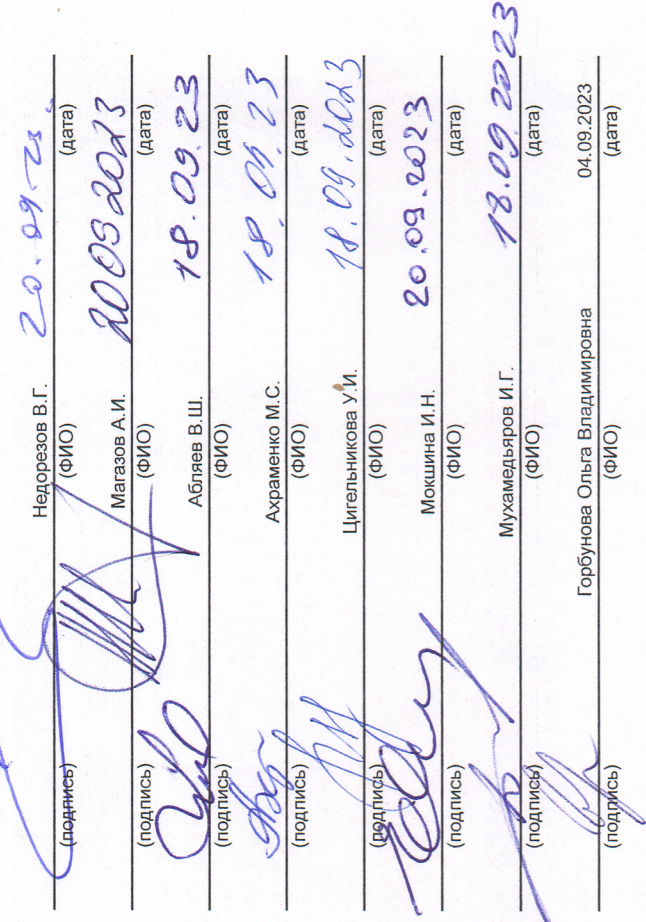 Недорезов В.Г. 20.09.23.
(подпись) (ФИО) (дата)
Магазов А.И. 20092023
(подпись) (ФИО) (дата)
Абляев В.Ш. 18.09.23
(подпись) (ФИО) (дата)
Ахраменко М.С. 18.09.23
(подпись) (ФИО) (дата)
Цигельникова У.И. 18.09.2023
(подпись) (ФИО) (дата)
Мокшина И.Н. 20.09.2023
(подпись) (ФИО) (дата)
Мухамедьяров И.Г. 18.09.2023
(подпись) (ФИО) (дата)
Горбунова Ольга Владимировна 04.09.2023
(подпись) (ФИО) (дата)